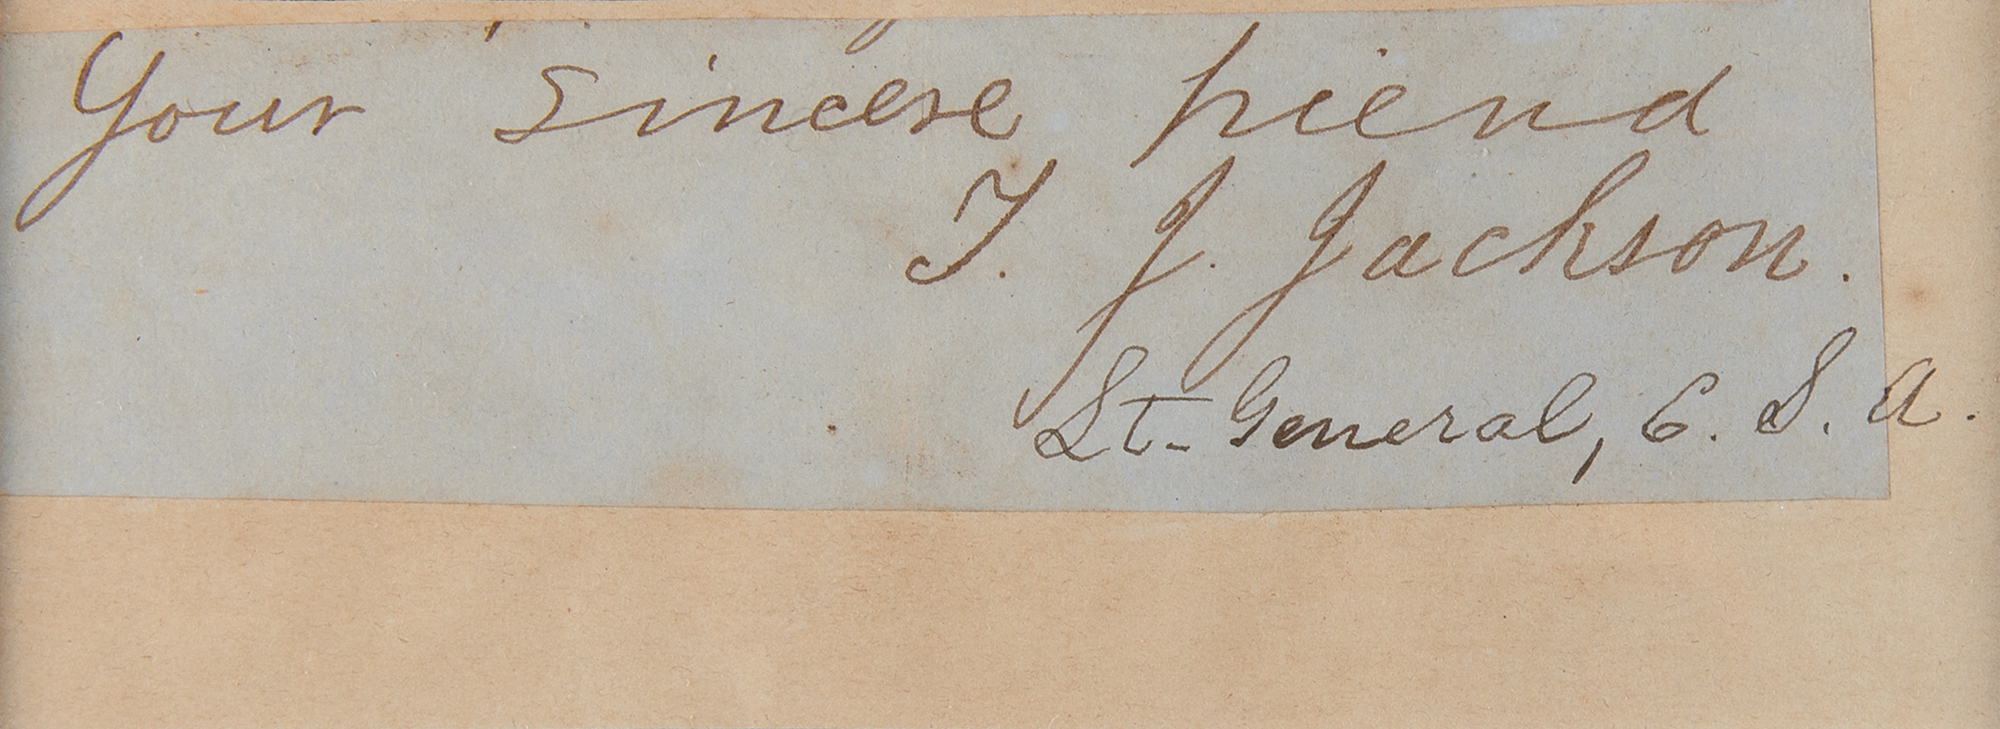 Your sincere friend
T. J. Jackson.
Lt-General, C. S. A.